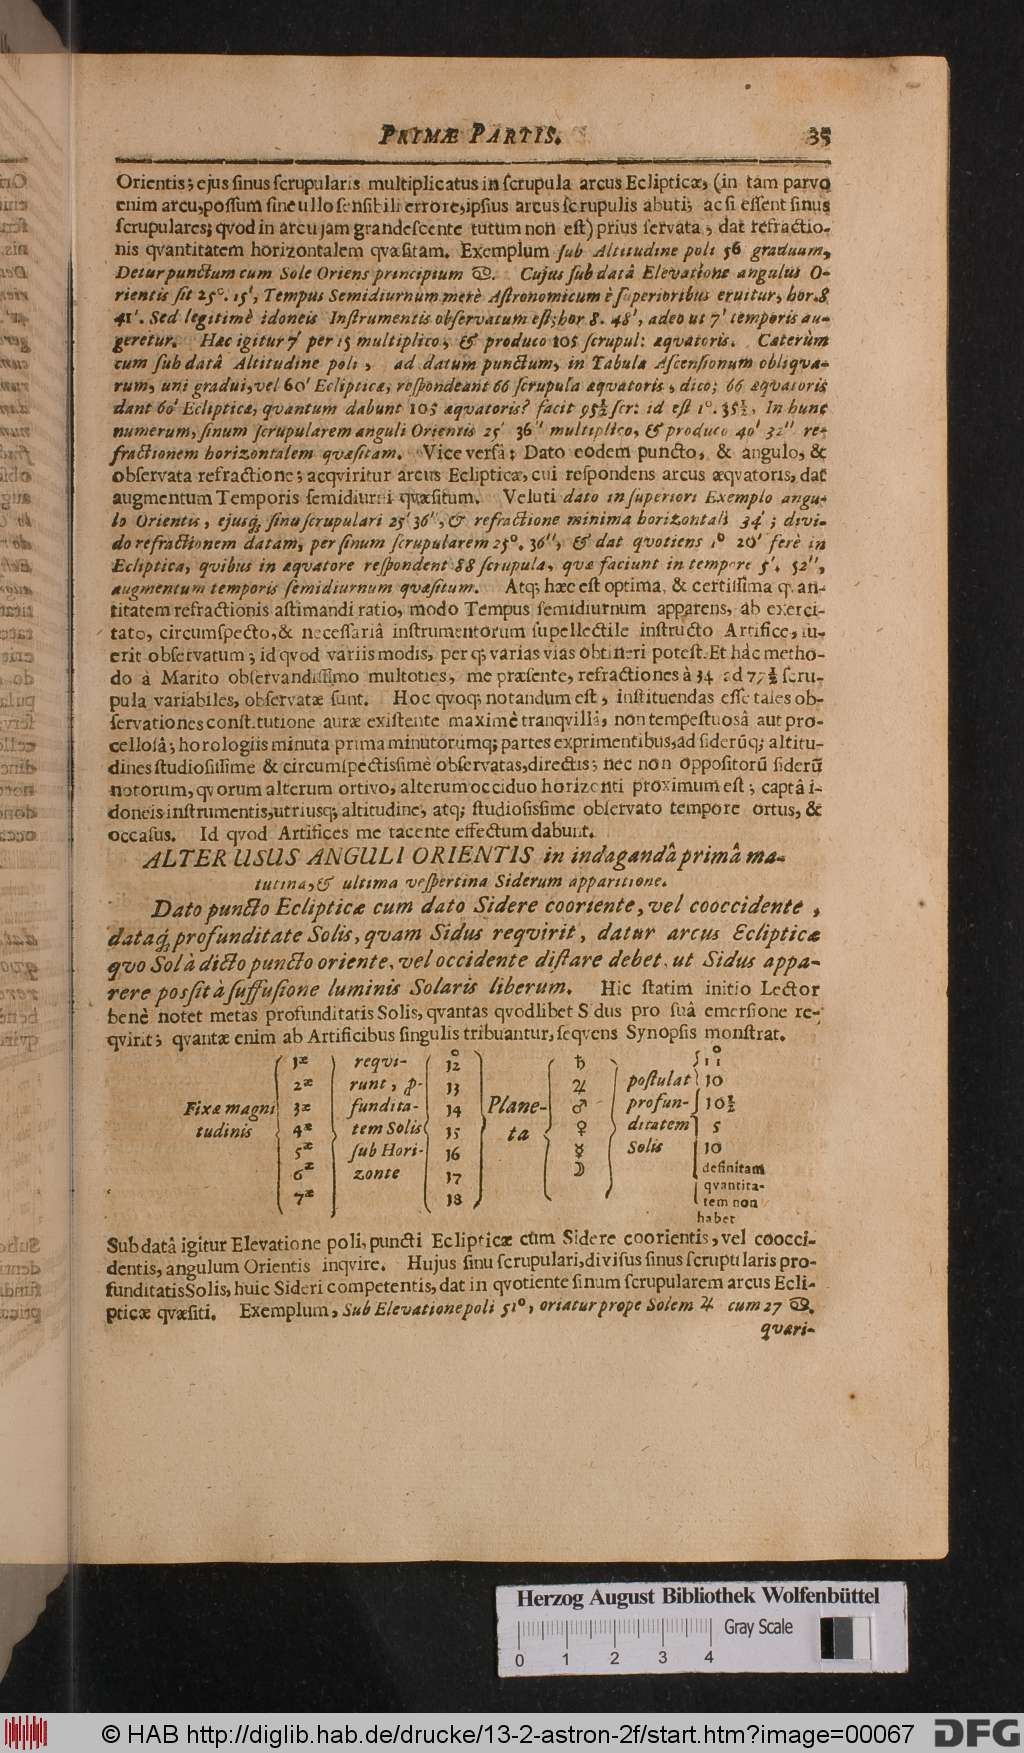 PRIMÆ PARTIS. 35
Orientis; ejus sinus scrupularis multiplicatus in scrupula arcus Eclipticæ, (in tam parvo
enim arcu, possum sine ullo sensibili errore, ipsius arcus scrupulis abuti; ac si essent sinus
scrupulares; qvod in arcu jam grandescente tutum non est) prius servata, dat refractio-
nis qvantitatem horizontalem qvæsitam. Exemplum sub Altitudine poli 56 graduum,
Detur punctum cum Sole Oriens principium ♋. Cujus sub datâ Elevatione angulus O-
rientis sit 25°. 15', Tempus Semidiurnum merè Astronomicum è superioribus eruitur, hor. 8
41'. Sed legitimè idoneis Instrumentis observatum est; hor 8. 48', adeo ut 7' temporis au-
geretur. Hæc igitur 7' per 15 multiplico, & produco 105 scrupul: æqvatoris. Cæterùm
cum sub datâ Altitudine poli, ad datum punctum, in Tabula Ascensionum obliqva-
rum, uni gradui, vel 60' Eclipticæ, respondeant 66 scrupula æqvatoris, dico; 66 æqvatoris
dant 60' Eclipticæ, qvantum dabunt 105 æqvatoris? facit 95½ scr: id est 1°. 35½, In hunc
numerum, sinum scrupularem anguli Orientis 25' 36'' multiplico, & produco 40' 32'' re-
fractionem horizontalem qvæsitam. Vice versâ: Dato eodem puncto, & angulo, &
observata refractione; acqviritur arcus Eclipticæ, cui respondens arcus æqvatoris, dat
augmentum Temporis semidiurni qvæsitum. Veluti dato in superiori Exemplo angu-
lo Orientis, ejusq; sinu scrupulari 25' 36'', & refractione minima horizontali 34'; divi-
do refractionem datam, per sinum scrupularem 25°. 36'', & dat qvotiens 1° 20' ferè in
Ecliptica, qvibus in æqvatore respondent 88 scrupula, qvæ faciunt in tempore 5'. 52'',
augmentum temporis semidiurnum qvæsitum. Atq; hæc est optima, & certissima qvan-
titatem refractionis æstimandi ratio, modo Tempus semidiurnum apparens, ab exerci-
tato, circumspecto, & necessariâ instrumentorum supellectile instructo Artifice, fu-
erit observatum; id qvod variis modis, per q; varias vias obtineri potest. Et hâc metho-
do à Marito observandissimo multoties, me præsente, refractiones à 34 ad 77½ scru-
pula variabiles, observatæ sunt. Hoc qvoq; notandum est, instituendas esse tales ob-
servationes constitutione auræ existente maximè tranqvillâ, non tempestuosâ aut pro-
cellosâ; horologiis minuta prima minutorumq; partes exprimentibus, ad siderũq; altitu-
dines studiosissime & circumspectissimè observatas, directis; nec non oppositorũ siderũ
notorum, qvorum alterum ortivo, alterum occiduo horizonti proximum est; captâ i-
doneis instrumentis, utriusq; altitudine, atq; studiosissime observato tempore ortus, &
occasus. Id qvod Artifices me tacente effectum dabunt.
ALTER USUS ANGULI ORIENTIS in indagandâ primâ ma-
tutina, & ultima vespertina Siderum apparitione.
Dato puncto Eclipticæ cum dato Sidere cooriente, vel cooccidente,
dataq; profunditate Solis, qvam Sidus reqvirit, datur arcus Eclipticæ
qvo Sol à dicto puncto oriente, vel occidente distare debet, ut Sidus appa-
rere possit à suffusione luminis Solaris liberum. Hic statim initio Lector
benè notet metas profunditatis Solis, qvantas qvodlibet Sidus pro suâ emersione re-
qvirit; qvantæ enim ab Artificibus singulis tribuantur, seqvens Synopsis monstrat.
Fixæ magni
tudinis
1æ
2æ
3æ
4æ
5æ
6æ
7æ
reqvi-
runt, p-
fundita-
tem Solis
sub Hori-
zonte
12°
13
14
15
16
17
18
Plane-
ta
♄
♃
♂
♀
☿
☽
postulat
profun-
ditatem
Solis
11°
10
10½
5
10
definitam
qvantita-
tem non
habet
Sub datâ igitur Elevatione poli, puncti Eclipticæ cum Sidere coorientis, vel coocci-
dentis, angulum Orientis inqvire. Hujus sinu scrupulari, divisus sinus scrupularis pro-
funditatis Solis, huic Sideri competentis, dat in qvotiente sinum scrupularem arcus Ecli-
pticæ qvæsiti. Exemplum, Sub Elevatione poli 51°, oriatur prope Solem ♃ cum 27 ♋.
qvari-
Herzog August Bibliothek Wolfenbüttel
Gray Scale
0 1 2 3 4
© HAB http://diglib.hab.de/drucke/13-2-astron-2f/start.htm?image=00067 DFG